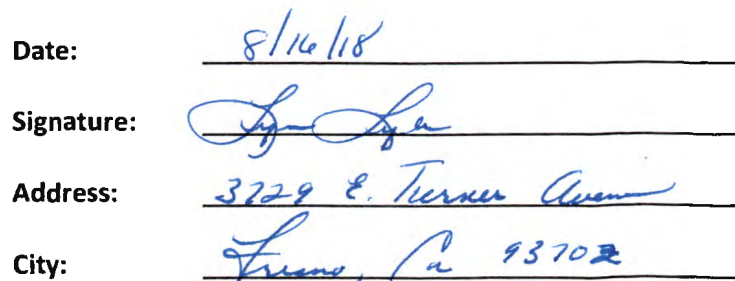 Date: 8/16/18
Signature: Lynn
Address: 3729 E. Turner Avenue
City: Fresno, Ca 93702